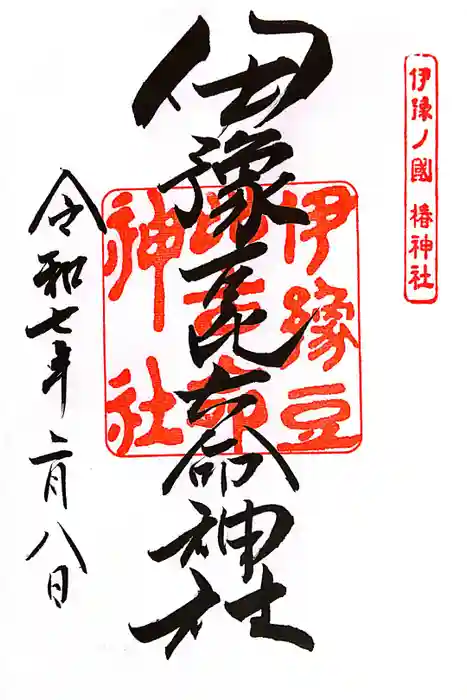 伊豫ノ國 椿神社
伊豫豆比古命神社
伊豫豆比古命神社
令和七年二月八日